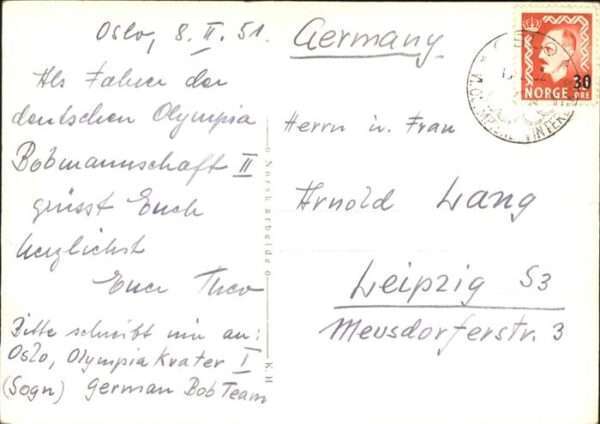 Oslo, 8. II. 51.
Als Fahrer der
deutschen Olympia
Bobmannschaft II
grüsst Euch
herzlichst
Euer Theo
Bitte schreibt mir an:
Oslo, Olympia Krater I
(Sogn) German Bob Team
Norsk arbeide
K.H
Germany
Herrn u. Frau
Arnold Lang
Leipzig S3
Meusdorferstr. 3
30
NORGE